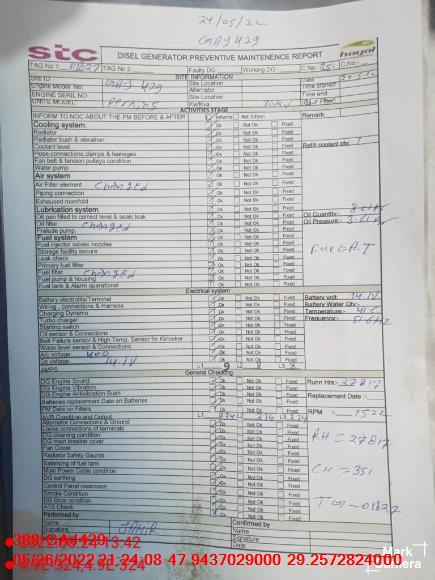 24/05/22
GAY 429
stc
hayat
DISEL GENERATOR PREVENTIVE MAINTENENCE REPORT
TAG No 1: 01827 TAG No 2: Faulty DG- Working DG- C.No:- 351 C.No:-
SITE INFORMATION
Site ID GAY 429 Site Location Date
Engine Model No: Alternator Time started
ENGINE SERIL NO. Site Location Time end
UNITE MODEL Perkins Kw/Kva 30KV
ACTIVITIES STAGE
INFORM TO NOC ABOUT THE PM BEFORE & AFTER Informe Not Inform Remark:
Cooling system. Ok Not Ok Fixed
Radiator Ok Not Ok Fixed
Radiator bush & vibration Ok Not Ok Fixed
Coolant level Ok Not Ok Fixed Refill coolant qty:
Hose,connections,clamps & leakeges Ok Not Ok Fixed
Fan belt & tension pulleys condition Ok Not Ok Fixed
Water pump Ok Not Ok Fixed
Air system
Air Filter element changed Ok Not Ok Fixed
Piping connection Ok Not Ok Fixed
Exhausted manifold Ok Not Ok Fixed
Lubrication system
Oil pan filled to correct level & seals leak Ok Not Ok Fixed Oil Quantity:-
Oil filter changed Ok Not Ok Fixed Oil Pressure:-
Prelude pump. Ok Not Ok Fixed
Fuel system
Fuel injector valves nozzles Ok Not Ok Fixed
Storage facility secure Ok Not Ok Fixed
Leak check Ok Not Ok Fixed
Primary fuel filter Ok Not Ok Fixed
Fuel filter changed Ok Not Ok Fixed
Fuel pump & housing Ok Not Ok Fixed
Fuel tank & Alarm operational Ok Not Ok Fixed
Electrical system
Battery electrolits/Terminal Ok Not Ok Fixed Battery volt: 14.1V
Wiring , connections & Harness Ok Not Ok Fixed Battery Water Qty:-
Charging Dynamo Ok Not Ok Fixed Temperature:- 41.C
Turbo charger Ok Not Ok Fixed Frequency:-
Starting switch Ok Not Ok Fixed
Oil sensor & Connections Ok Not Ok Fixed
Belt Failure sensor & High Temp. Sensor for Kirlosker Ok Not Ok Fixed
Water level sensor & Connections Ok Not Ok Fixed
A/c voltage 400 Ok Not Ok Fixed
Dc voltage 14.1V Ok Not Ok Fixed
AMPS L1 9 L2 8 L3 8
General Checking
DG Engine Sound Ok Not Ok Fixed Runn Hrs:-
DG Engine Vibration Ok Not Ok Fixed
DG Engine Antivibration Bush Ok Not Ok Fixed
Batteries replacement Date on Batteries Ok Not Ok Fixed Replacement Date:-
PM Date on Filters Ok Not Ok Fixed
AVR Condition and Output L1 234 L2 234 L3 234 RPM :- 1522
Alternator Connections & Ground Ok Not Ok Fixed
Loose connections of terminals Ok Not Ok Fixed RH = 27817
DG cleaning condition Ok Not Ok Fixed
DG main breaker cover Ok Not Ok Fixed
Fan Cover Ok Not Ok Fixed
Radiator Safety Gaurds Ok Not Ok Fixed CN = 351
Balancing of fuel tank Ok Not Ok Fixed
Main Power Cable condition Ok Not Ok Fixed
DG earthing Ok Not Ok Fixed
Control Panel cleanness Ok Not Ok Fixed TG = 01827
Smoke Condition Ok Not Ok Fixed
DG Door condition Ok Not Ok Fixed
ATS Check Ok Not Ok Fixed
Performed by Confirmed by
Name JAHIR Name
Signature Signature
Date
388-GAJ429
05/26/2022 21:24:08 47.9437029000 29.2572824000
Mark
Camera